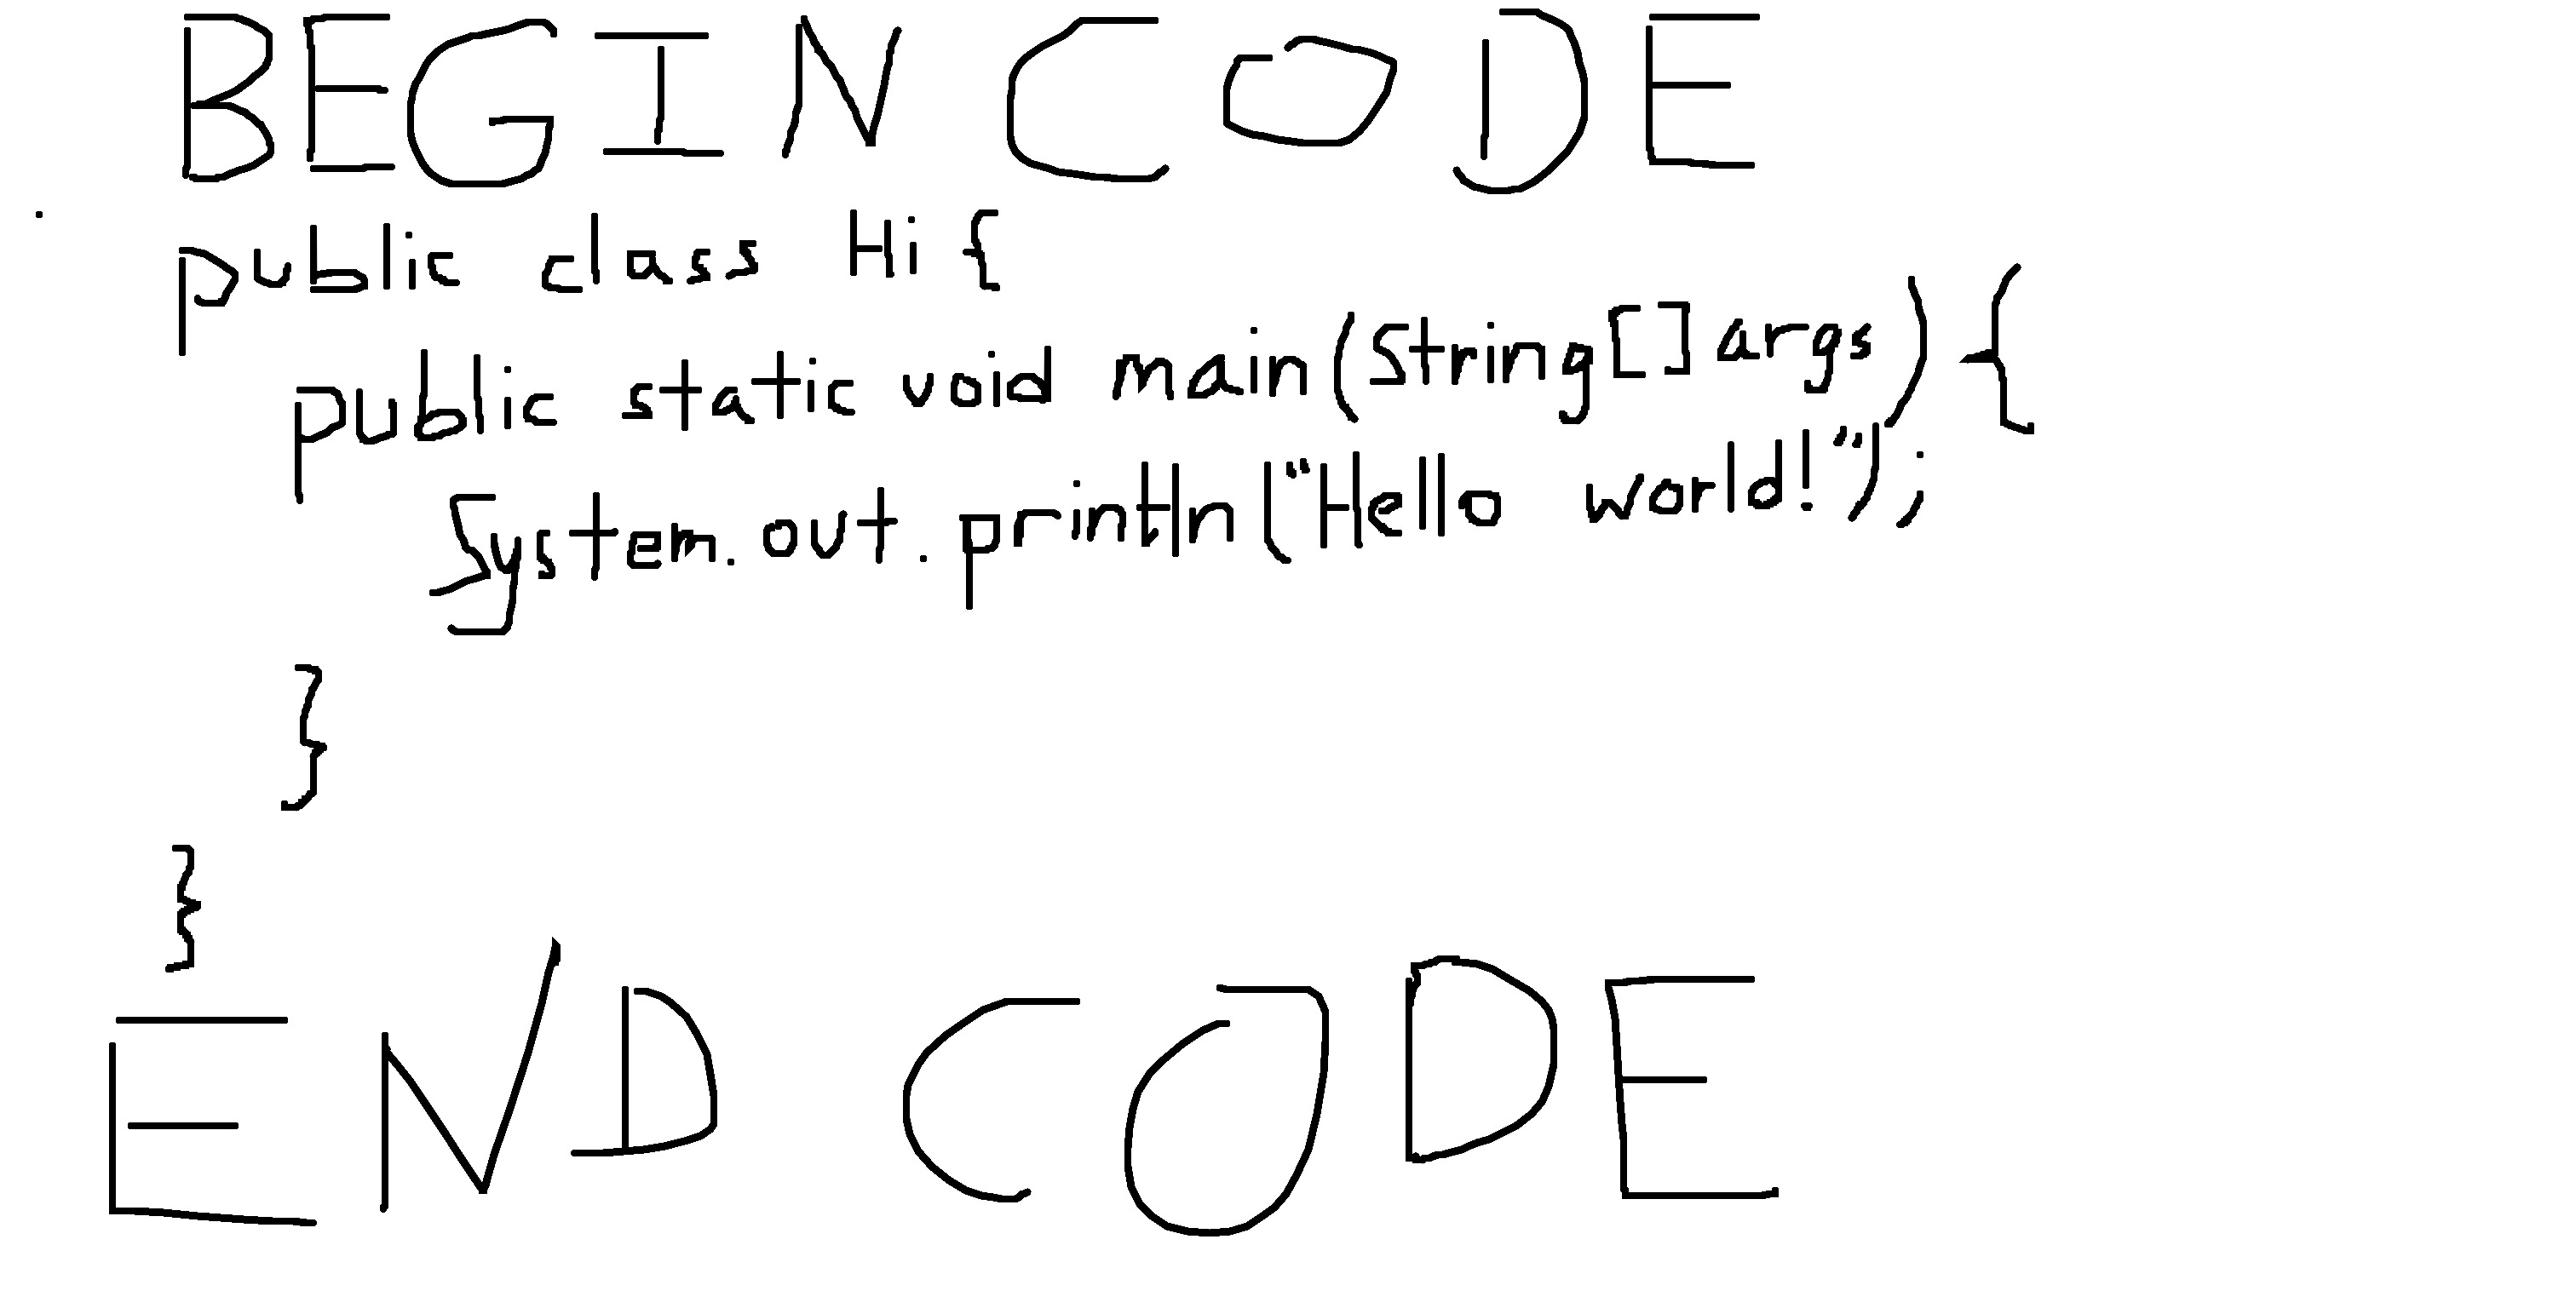 BEGIN CODE
public class Hi {
public static void main(String[] args) {
System.out.println("Hello world!");
}
}
END CODE